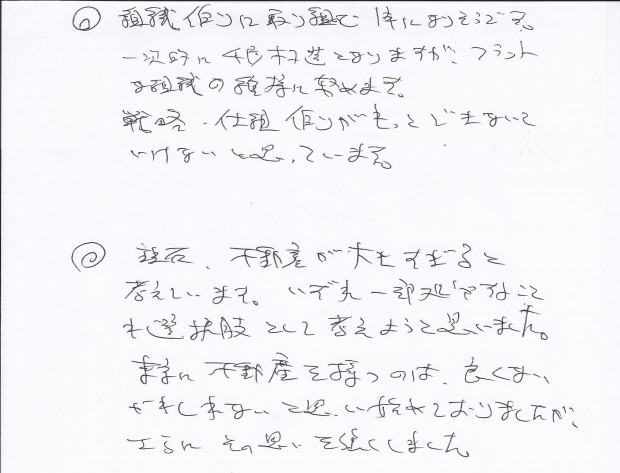 ⑥ 組織作りに取り組む 体になりそうです。
一次的に 構造となりますが、フラット
な組織の維持に努めます。
戦略・仕組作りがもっとできないと
いけないと思っています。
不動産が大きすぎると
考えています。いずれ一部処分すること
も選択肢として考えようと思いました。
に不動産を持つのは、良くない
かもしれないと思い始めておりましたが、
さらにその思いを強くしました。